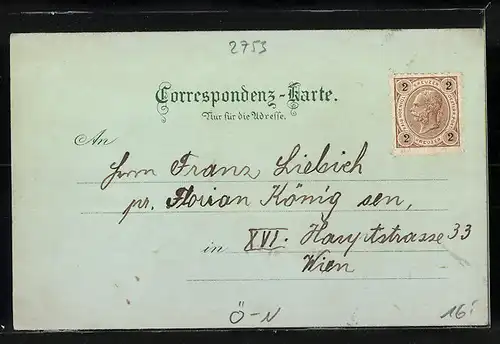 2753
Correspondenz-Karte.
Nur für die Adresse.
2 2
KREUZER
2 2
An Herrn Franz Liebich
pr. Florian König sen,
in XVI. Hauptstrasse 33
Wien
Ö-N
16: